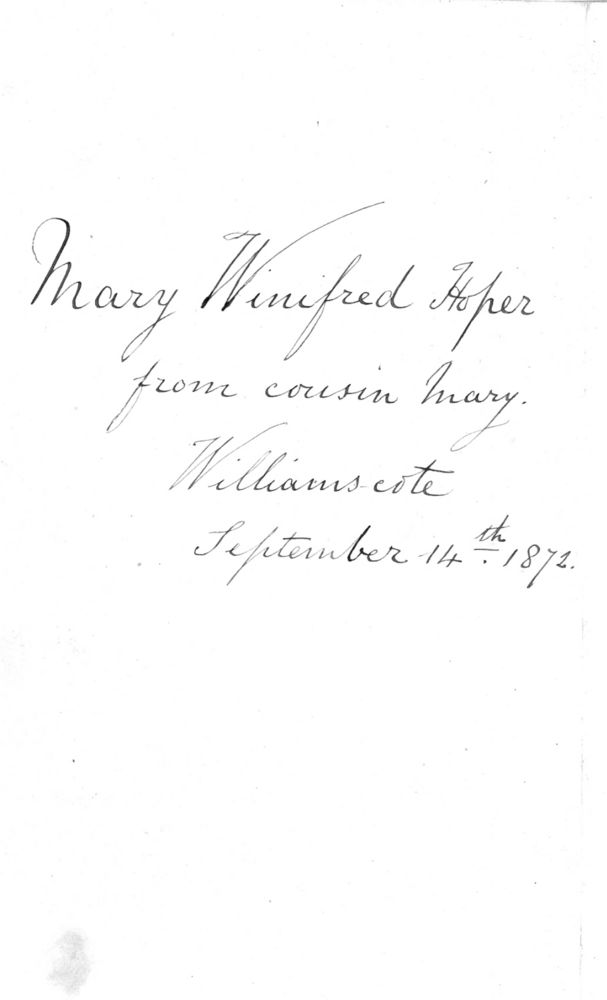 Mary Winifred Hoper
from cousin Mary.
Williams-cote
September 14th. 1872.